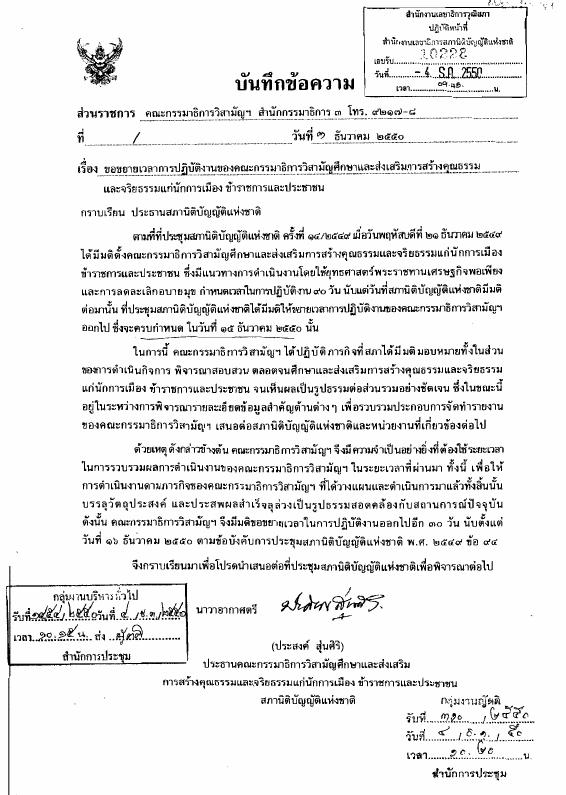 สำนักงานเลขาธิการวุฒิสภา
ปฏิบัติหน้าที่
สำนักงานเลขาธิการสภานิติบัญญัติแห่งชาติ
เลขรับ 10228
วันที่ - 4 ธ.ค. 2550
เวลา น.
บันทึกข้อความ
ส่วนราชการ คณะกรรมาธิการวิสามัญฯ สำนักกรรมาธิการ ๓ โทร. ๙๒๑๗-๘
ที่ / วันที่ ๓ ธันวาคม ๒๕๕๐
เรื่อง ขอขยายเวลาการปฏิบัติงานของคณะกรรมาธิการวิสามัญศึกษาและส่งเสริมการสร้างคุณธรรม
และจริยธรรมแก่นักการเมือง ข้าราชการและประชาชน
กราบเรียน ประธานสภานิติบัญญัติแห่งชาติ
ตามที่ที่ประชุมสภานิติบัญญัติแห่งชาติ ครั้งที่ ๑๔/๒๕๔๙ เมื่อวันพฤหัสบดีที่ ๒๑ ธันวาคม ๒๕๔๙
ได้มีมติตั้งคณะกรรมาธิการวิสามัญศึกษาและส่งเสริมการสร้างคุณธรรมและจริยธรรมแก่นักการเมือง
ข้าราชการและประชาชน ซึ่งมีแนวทางการดำเนินงานโดยใช้ยุทธศาสตร์พระราชทานเศรษฐกิจพอเพียง
และการลดละเลิกอบายมุข กำหนดเวลาในการปฏิบัติงาน ๙๐ วัน นับแต่วันที่สภานิติบัญญัติแห่งชาติมีมติ
ต่อมานั้น ที่ประชุมสภานิติบัญญัติแห่งชาติได้มีมติให้ขยายเวลาการปฏิบัติงานของคณะกรรมาธิการวิสามัญฯ
ออกไป ซึ่งจะครบกำหนด ในวันที่ ๑๕ ธันวาคม ๒๕๕๐ นั้น
ในการนี้ คณะกรรมาธิการวิสามัญฯ ได้ปฏิบัติภารกิจที่สภาได้มีมติมอบหมายทั้งในส่วน
ของการดำเนินกิจการ พิจารณาสอบสวน ตลอดจนศึกษาและส่งเสริมการสร้างคุณธรรมและจริยธรรม
แก่นักการเมือง ข้าราชการและประชาชน จนเห็นผลเป็นรูปธรรมต่อส่วนรวมอย่างชัดเจน ซึ่งในขณะนี้
อยู่ในระหว่างการพิจารณารายละเอียดข้อมูลสำคัญด้านต่างๆ เพื่อรวบรวมประกอบการจัดทำรายงาน
ของคณะกรรมาธิการวิสามัญฯ เสนอต่อสภานิติบัญญัติแห่งชาติและหน่วยงานที่เกี่ยวข้องต่อไป
ด้วยเหตุดังกล่าวข้างต้น คณะกรรมาธิการวิสามัญฯ จึงมีความจำเป็นอย่างยิ่งที่ต้องใช้ระยะเวลา
ในการรวบรวมผลการดำเนินงานของคณะกรรมาธิการวิสามัญฯ ในระยะเวลาที่ผ่านมา ทั้งนี้ เพื่อให้
การดำเนินงานตามภารกิจของคณะกรรมาธิการวิสามัญฯ ที่ได้วางแผนและดำเนินการมาแล้วทั้งสิ้นนั้น
บรรลุวัตถุประสงค์ และประสพผลสำเร็จลุล่วงเป็นรูปธรรมสอดคล้องกับสถานการณ์ปัจจุบัน
ดังนั้น คณะกรรมาธิการวิสามัญฯ จึงมีมติขอขยายเวลาในการปฏิบัติงานออกไปอีก ๓๐ วัน นับตั้งแต่
วันที่ ๑๖ ธันวาคม ๒๕๕๐ ตามข้อบังคับการประชุมสภานิติบัญญัติแห่งชาติ พ.ศ. ๒๕๔๙ ข้อ ๙๔
จึงกราบเรียนมาเพื่อโปรดนำเสนอต่อที่ประชุมสภานิติบัญญัติแห่งชาติเพื่อพิจารณาต่อไป
กลุ่มงานบริหารทั่วไป
รับที่ /๒๕๕๐ วันที่ ๔ /ธ.ค./๒๕๕๐
เวลา ๑๐.๑๕ น. ส่ง ญัตติ
สำนักการประชุม
นาวาอากาศตรี
(ประสงค์ สุ่นศิริ)
ประธานคณะกรรมาธิการวิสามัญศึกษาและส่งเสริม
การสร้างคุณธรรมและจริยธรรมแก่นักการเมือง ข้าราชการและประชาชน
สภานิติบัญญัติแห่งชาติ
กลุ่มงานญัตติ
รับที่ ๓๑๐ /๒๕๕๐
วันที่ ๔ / ธ.ค. / ๕๐
เวลา ๑๐.๒๐ น.
สำนักการประชุม